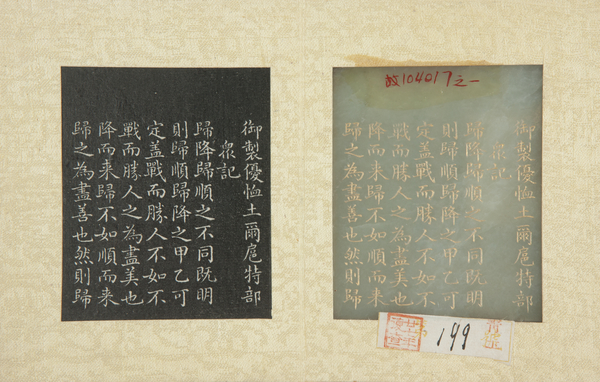 故104017之一
御製優恤土爾扈特部
衆記
歸降歸順之不同既明
則歸順歸降之甲乙可
定蓋戰而勝人不如不
戰而勝人之為盡美也
降而来歸不如順而来
歸之為盡善也然則歸
199
御製優恤土爾扈特部
衆記
歸降歸順之不同既明
則歸順歸降之甲乙可
定蓋戰而勝人不如不
戰而勝人之為盡美也
降而来歸不如順而来
歸之為盡善也然則歸